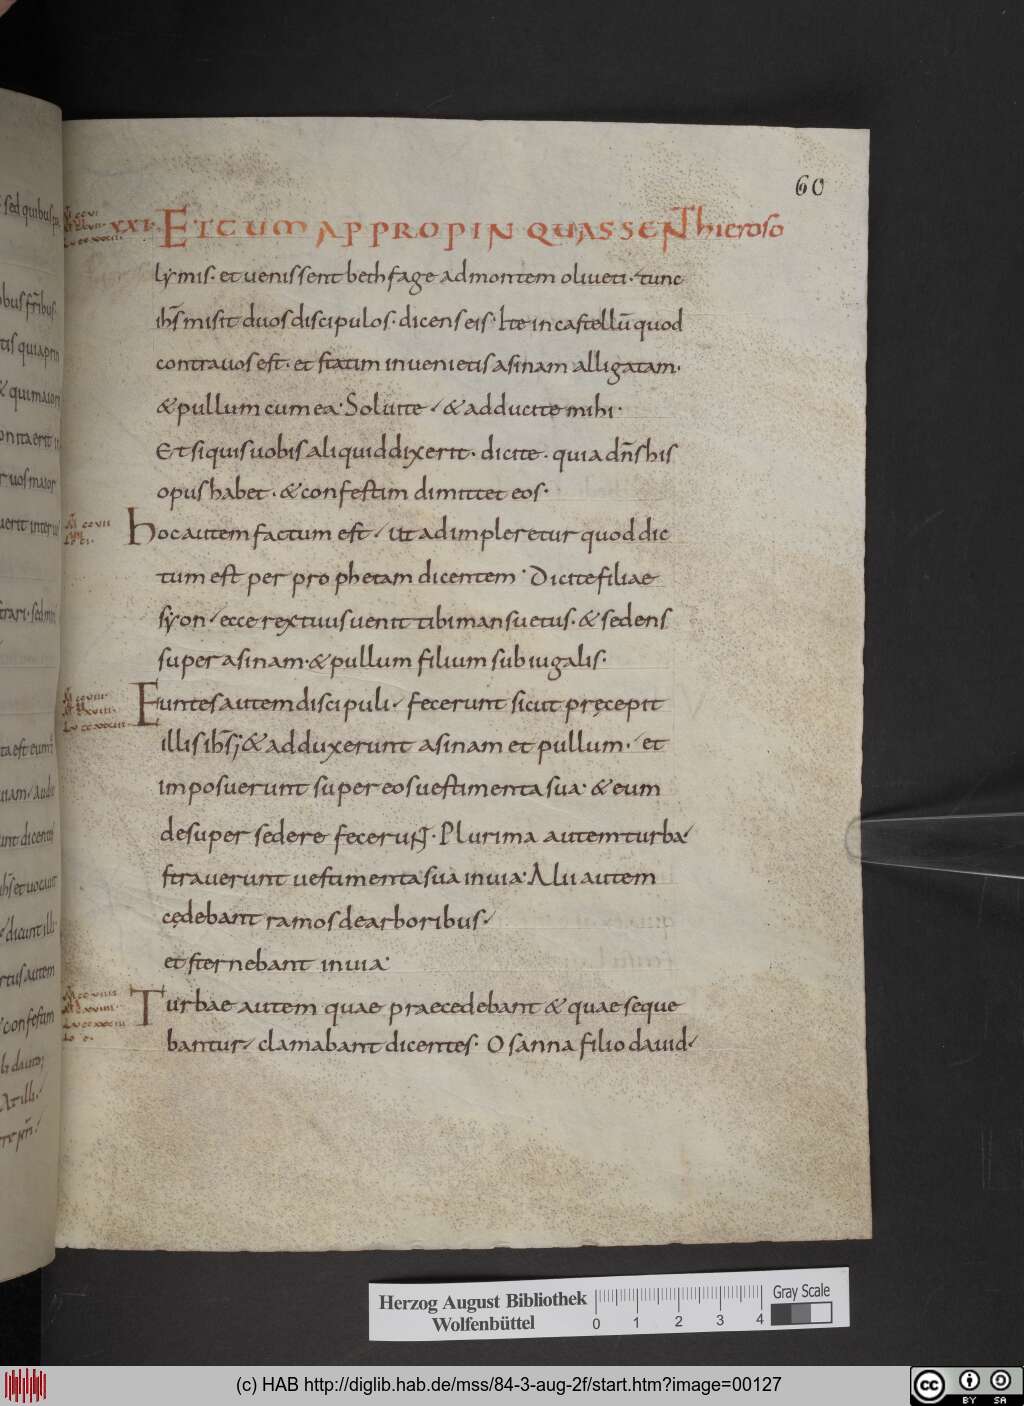 60
XXI. ET CUM APPROPINQUASSENT hieroso
lymis. et uenissent bethfage ad montem oliueti. tunc
ihs̄ misit duos discipulos. dicens eis. Ite in castellū quod
contra uos est. et statim inuenietis asinam alligatam.
& pullum cum ea. Soluite & adducite mihi.
Et siquis uobis aliquid dixerit. dicite. quia dn̄s his
opus habet. & confestim dimittet eos.
Hoc autem factum est ut adimpleretur quod dic
tum est per prophetam dicentem. Dicite filiae
syon ecce rex tuus uenit tibi mansuetus. & sedens
super asinam. & pullum filium subiugalis.
Euntes autem discipuli fecerunt sicut pręcepit
illis ihs̄; & adduxerunt asinam et pullum. et
imposuerunt super eos uestimenta sua. & eum
desuper sedere fecerunt. Plurima autem turba
strauerunt uestimenta sua in uia. Alii autem
cędebant ramos de arboribus
et sternebant in uia.
Turbae autem quae praecedebant & quae seque
bantur clamabant dicentes. Osanna filio dauid
Herzog August Bibliothek
Wolfenbüttel
0 1 2 3 4
Gray Scale
(c) HAB http://diglib.hab.de/mss/84-3-aug-2f/start.htm?image=00127
cc BY SA